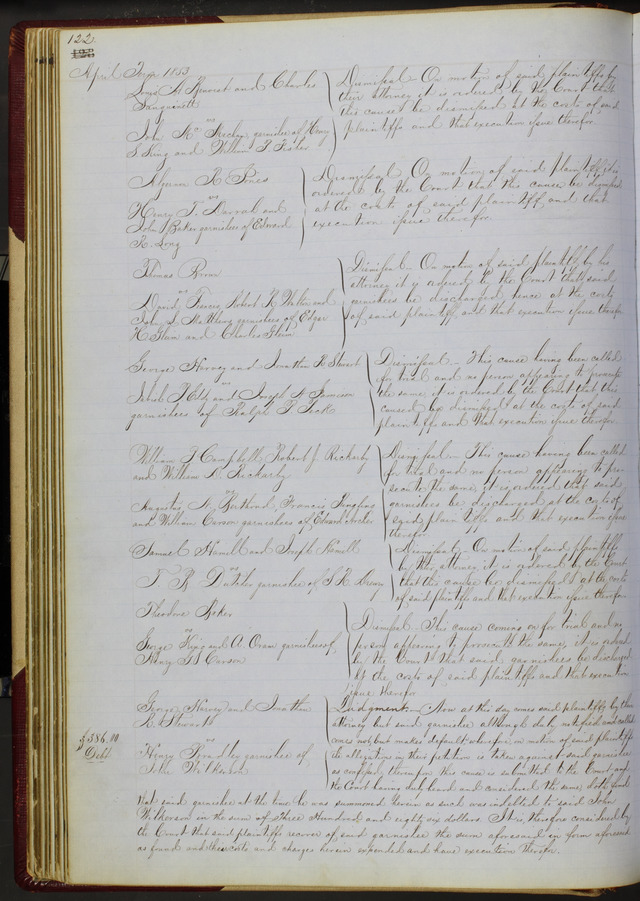 122
April Term 1853
Louis A. Benoist and Charles
Sanguinett
vs
John Mc garnishee of Henry
S. King and William P. Fisher
Dismissal - On motion of said plaintiffs by
their attorney it is ordered by the Court that
this cause be dismissed at the costs of said
plaintiffs and that execution issue therefor
R. Jones
vs
Henry T. and
John Baker garnishees of Edward
R. Long
Dismissal On motion of said plaintiff it is
ordered by the Court that this cause be dismissed
at the costs of said plaintiff and that
execution issue therefor
Thomas Brown
vs
David Robert K. and
John S. garnishees of Edgar
and Charles
Dismissal - On motion of said plaintiff by his
attorney it is ordered by the Court that said
garnishees be discharged hence at the costs
of said plaintiff and that execution issue therefor
George Harvey and Jonathan R. Stewart
vs
and Joseph
garnishees of Ralph P. Peck
Dismissal - This cause having been called
for trial and no person appearing to prosecute
the same, it is ordered by the Court that this
cause be dismissed at the costs of said
plaintiffs and that execution issue therefor
William T. Campbell, Robert J. Richarby
and William Richarby
vs
Augustus N. Francis
and William Carson garnishees of Edward
Dismissal - This cause having been called
for trial and no person appearing to pro-
secute the same, it is ordered that said
garnishees be discharged at the costs of
said plaintiffs and that execution issue
therefor
Samuel Hamill and Joseph Hamill
vs
T. R. garnishee of
Dismissal On motion of said plaintiffs
by their attorney, it is ordered by the Court
that the cause be dismissed at the costs
of said plaintiffs and that execution issue therefor
Theodore
vs
George King and A. garnishees of
Henry Carson
Dismissal - This cause coming on for trial and no
person appearing to prosecute the same, it is ordered
by the Court that said garnishees be discharged
at the costs of said plaintiffs and that execution
issue therefor
George Harvey and Jonathan
R. Stewart
vs
Henry garnishee of
John Wilkerson
$386.00
Debt
Judgment - Now at this day comes said plaintiffs by their
attorney but said garnishee although duly notified and called
comes not, but makes default, wherefore, on motion of said plaintiffs
the allegations in their petition is taken against said garnishee
as confessed, thereupon this cause is submitted to the Court, and
the Court having duly heard and considered the same doth find
that said garnishee at the time he was summoned herein as such was indebted to said John
Wilkerson in the sum of Three Hundred and eighty six dollars. It is, therefore considered by
the Court that said plaintiffs recover of said garnishee the sum aforesaid in form aforesaid
as found and their costs and charges herein expended and have execution therefor.